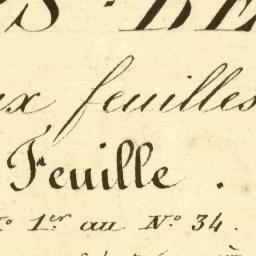 ux feuilles
Feuille.
N.º 1.er au N.º 34.